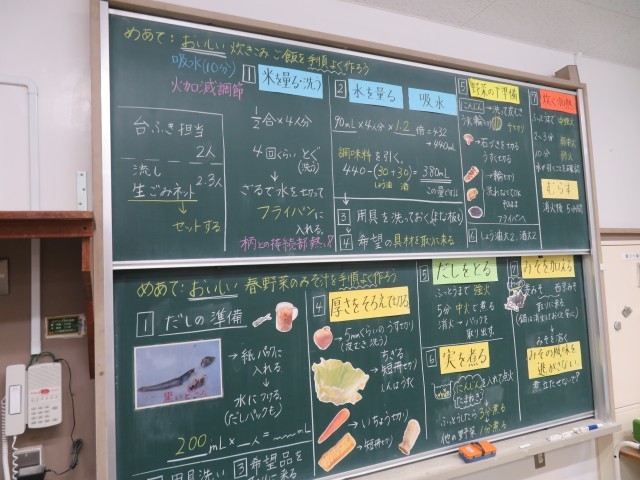 めあて：おいしい 炊きこみご飯を手順よく作ろう
吸水(10分)
火加減調節
台ふき担当
2人
流し
生ごみネット 2.3人
セットする
1 米を量る・洗う
1/2合×4人分
4回くらい とぐ
(洗う)
ざるで水を切って
フライパンに
入れる。
柄との接続部熱い?
2 水を量る 吸水
90mL×4人分×1.2 倍=432
→440mL
調味料を引く。
440-(30+30)=380mL
しょう油 酒
この量です
3 用具を洗っておく
4 希望の具材を取りに来る
5 野菜の下準備
にんじん→洗って皮むき
うす輪切り
→石づきを切る
うすく切る
→輪切り
→洗わなくてOK
フライパンへ
6 しょう油大2、酒大2
7 炊く(加熱)
ふっとうまで 中強火
2~3分
10分
むらす
消火後 5分間
めあて：おいしい 春野菜のみそ汁を手順よく作ろう
1 だしの準備
→紙パックに
入れる
水につける。
(だしパックも)
200mL×__人=
用具洗い 3 希望品を
4 厚さをそろえて切る
5mmくらいのうす切り
(皮むき 洗う)
ちぎる
短冊切り
しんはうすく
→いちょう切り
→短冊切り
5 だしをとる
ふっとうまで 強火
5分 中火で煮る
消火→パックを
取り出す
6 実を煮る
にんじん
たまねぎ を入れて点火
ふっとうしたら 3分煮る
他の野菜 1分煮る
7 みそを加える
麦みそ
取りに来る
みそを溶く
みその風味を
逃がさない！